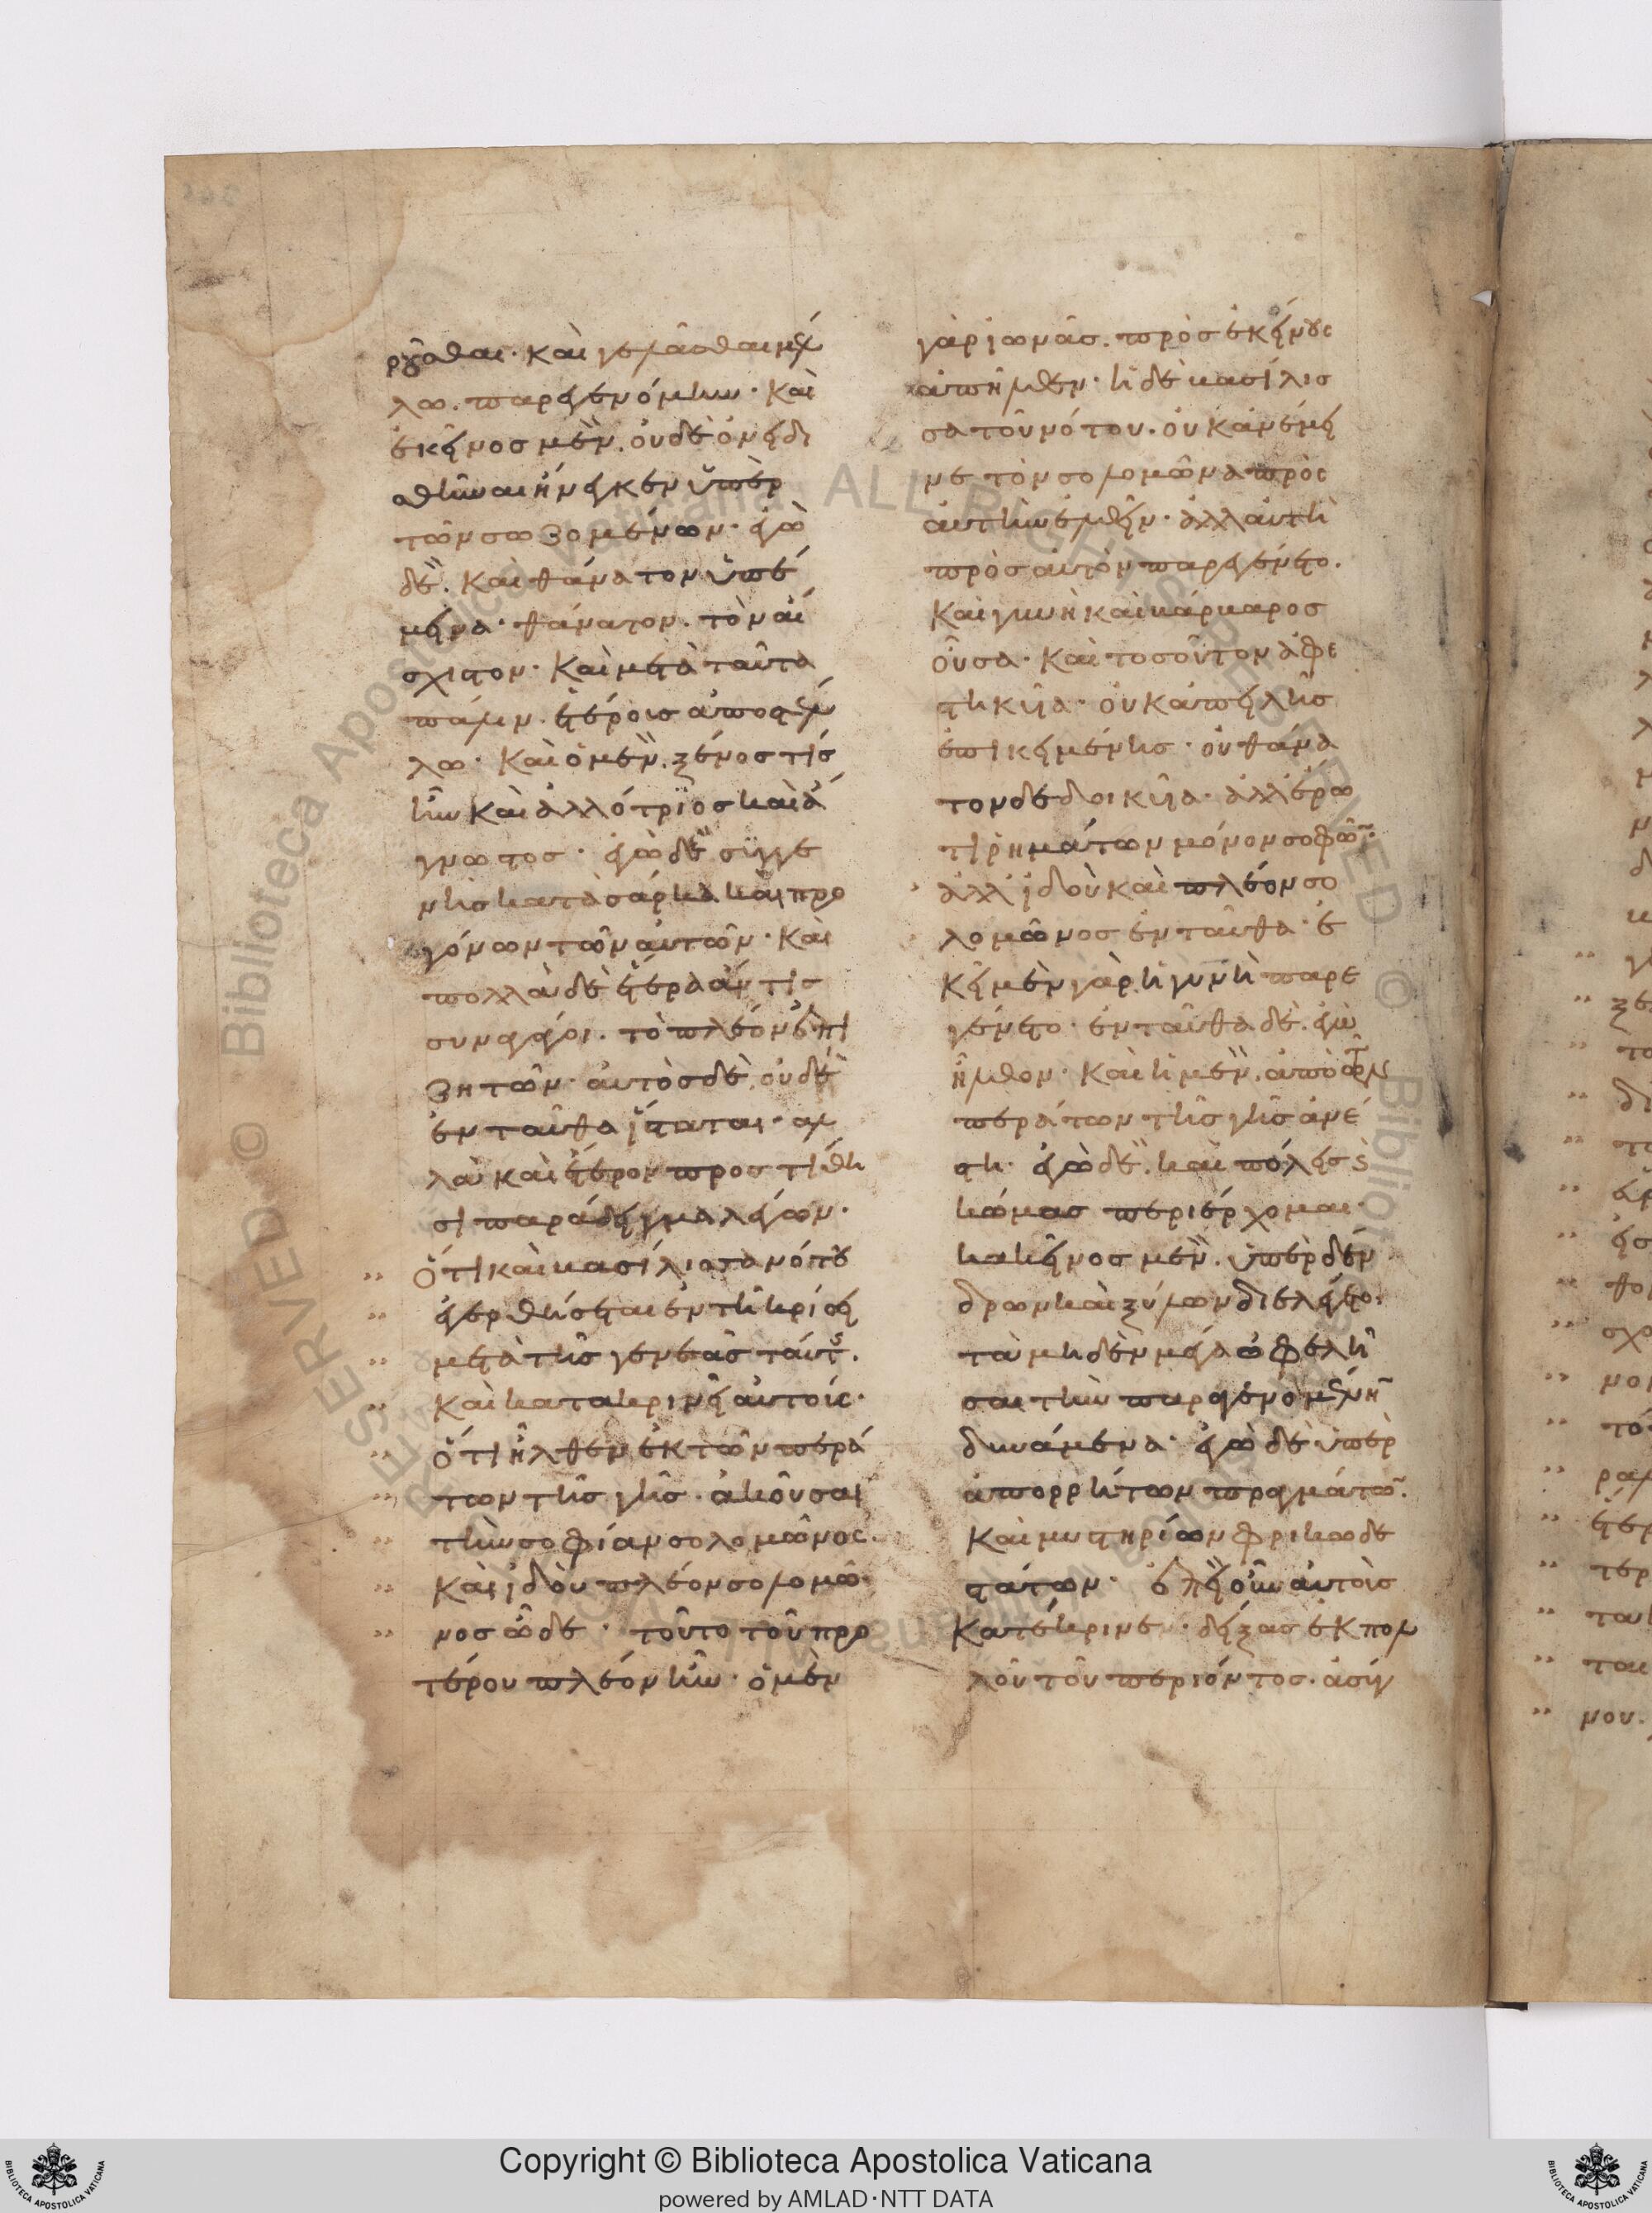 ροῦσθαι· καὶ γελᾶσθαι μέλ
λω. παραγενόμην· Καὶ
ἐκεῖνος μὲν, οὐδὲ ὀνειδι
σθῆναι ἤνεγκεν ὑπὲρ
τῶν σωζομένων· ἐγὼ
δὲ. Καὶ θάνατον ὑπέ
μεινα· θάνατον. τὸν αἴ
σχιστον· Καὶ μετὰ ταῦτα
πάλιν. ἑτέρους ἀποστέλ
λω· Καὶ ὁ μὲν, ξένος τίς
ἦν καὶ ἀλλότριος καὶ ἄ
γνωστος· ἐγὼ δὲ συγγε
νὴς κατὰ σάρκα καὶ προ
γόνων τῶν αὐτῶν· Καὶ
πολλὰ δὲ ἕτερα ἄν τις
συναγάγοι. τὸ πλέον ἐπι
ζητῶν· αὐτὸς δὲ, οὐδὲ
ἐνταῦθα ἵσταται· ἀλ
λὰ καὶ ἕτερον προστίθη
σι παράδειγμα λέγων·
Ὅτι καὶ βασίλισσα νότου
ἐγερθήσεται ἐν τῇ κρίσει
μετὰ τῆς γενεᾶς ταύτης.
Καὶ κατακρινεῖ αὐτούς·
ὅτι ἦλθεν ἐκ τῶν περά
των τῆς γῆς· ἀκοῦσαι
τὴν σοφίαν σολομῶνος·
Καὶ ἰδοὺ πλέον σολομῶ
νος ὧδε· τοῦτο τοῦ προ
τέρου πλέον ἦν· ὁ μὲν
γὰρ ἰωνᾶς. πρὸς ἐκείνους
ἀπῆλθεν· ἡ δὲ βασίλισ
σα τοῦ νότου. οὐκ ἀνέμει
νε τὸν σολομῶνα πρὸς
αὐτὴν ἐλθεῖν· ἀλλ αὐτὴ
πρὸς αὐτὸν παρεγένετο.
Καὶ γυνὴ καὶ βάρβαρος
οὖσα· Καὶ τοσοῦτον ἀφε
στηκυῖα· οὐκ ἀπειλῆς
ἐπικειμένης· οὐ θάνα
τον δεδοικυῖα· ἀλλ ἔρω
τι ῥημάτων μόνον σοφῶν·
ἀλλ ἰδοὺ καὶ πλέον σο
λομῶνος ἐνταῦθα· ἐ
κεῖ μὲν γὰρ ἡ γυνὴ παρε
γένετο· ἐνταῦθα δὲ. ἐγὼ
ἦλθον· Καὶ ἡ μὲν, ἀπὸ τῶν
περάτων τῆς γῆς ἀνέ
στη· ἐγὼ δὲ. καὶ πόλεις ϗ
κώμας περιέρχομαι·
κακεῖνος μὲν. ὑπὲρ δέν
δρων καὶ ξύλων διελέγετο.
τὰ μηδὲν μέγα ὠφελῆ
σαι τὴν παραγενομένην
δυνάμενα· ἐγὼ δὲ ὑπὲρ
ἀπορρήτων πραγμάτων.
Καὶ μυστηρίων φρικωδε
στάτων· ἐπεὶ οὖν αὐτοὺς
Κατέκρινεν· δείξας ἐκ πολ
λοῦ τοῦ περιόντος. ἀσύγ